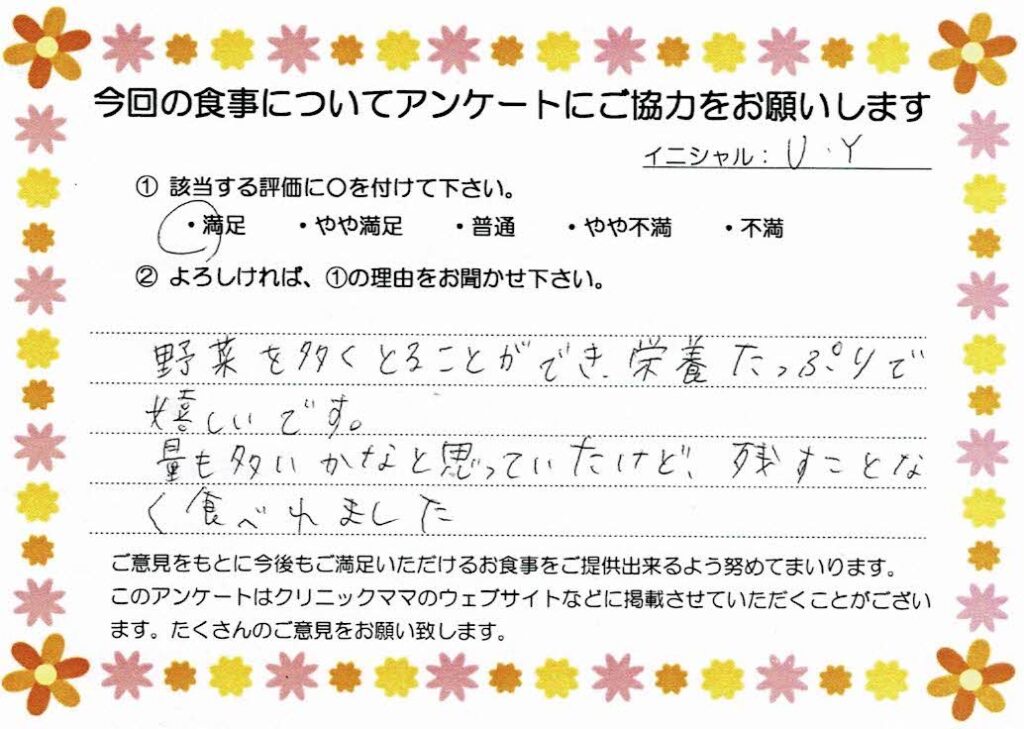 今回の食事についてアンケートにご協力をお願いします
イニシャル： U.Y
① 該当する評価に○を付けて下さい。
・満足 ・やや満足 ・普通 ・やや不満 ・不満
② よろしければ、①の理由をお聞かせ下さい。
野菜を多くとることができ、栄養たっぷりで
嬉しいです。
量も多いかなと思っていたけど、残すことな
く食べれました
ご意見をもとに今後もご満足いただけるお食事をご提供出来るよう努めてまいります。
このアンケートはクリニックママのウェブサイトなどに掲載させていただくことがござい
ます。たくさんのご意見をお願い致します。